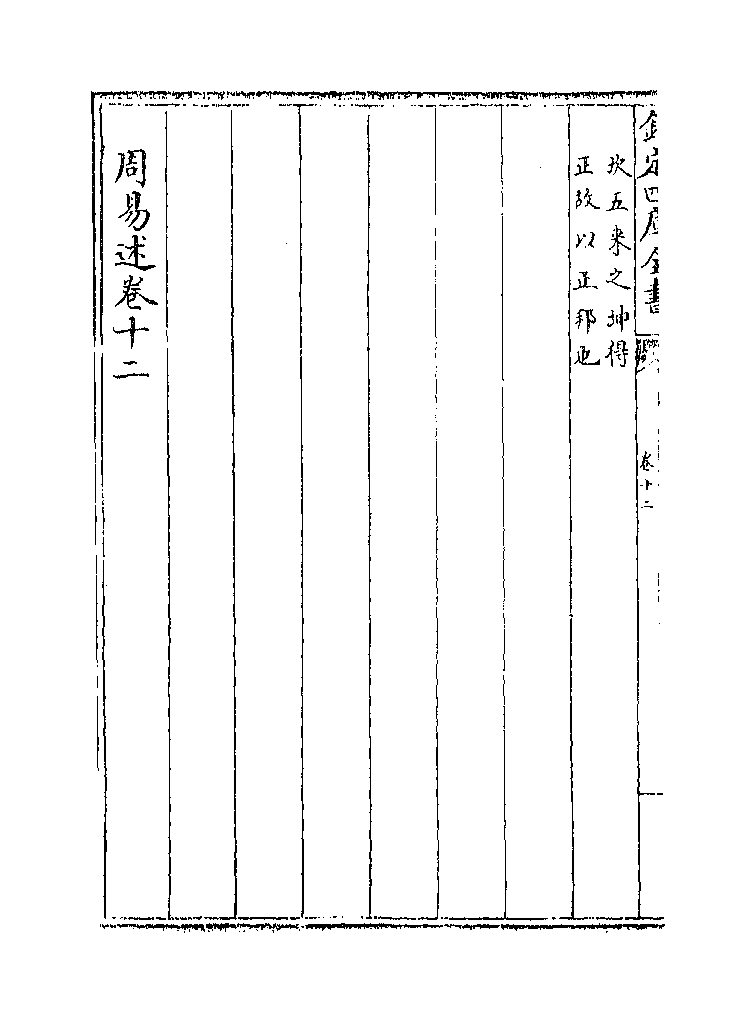 欽定四庫全書
卷十二
坎五來之坤得
正故以正邦也
周易述卷十二